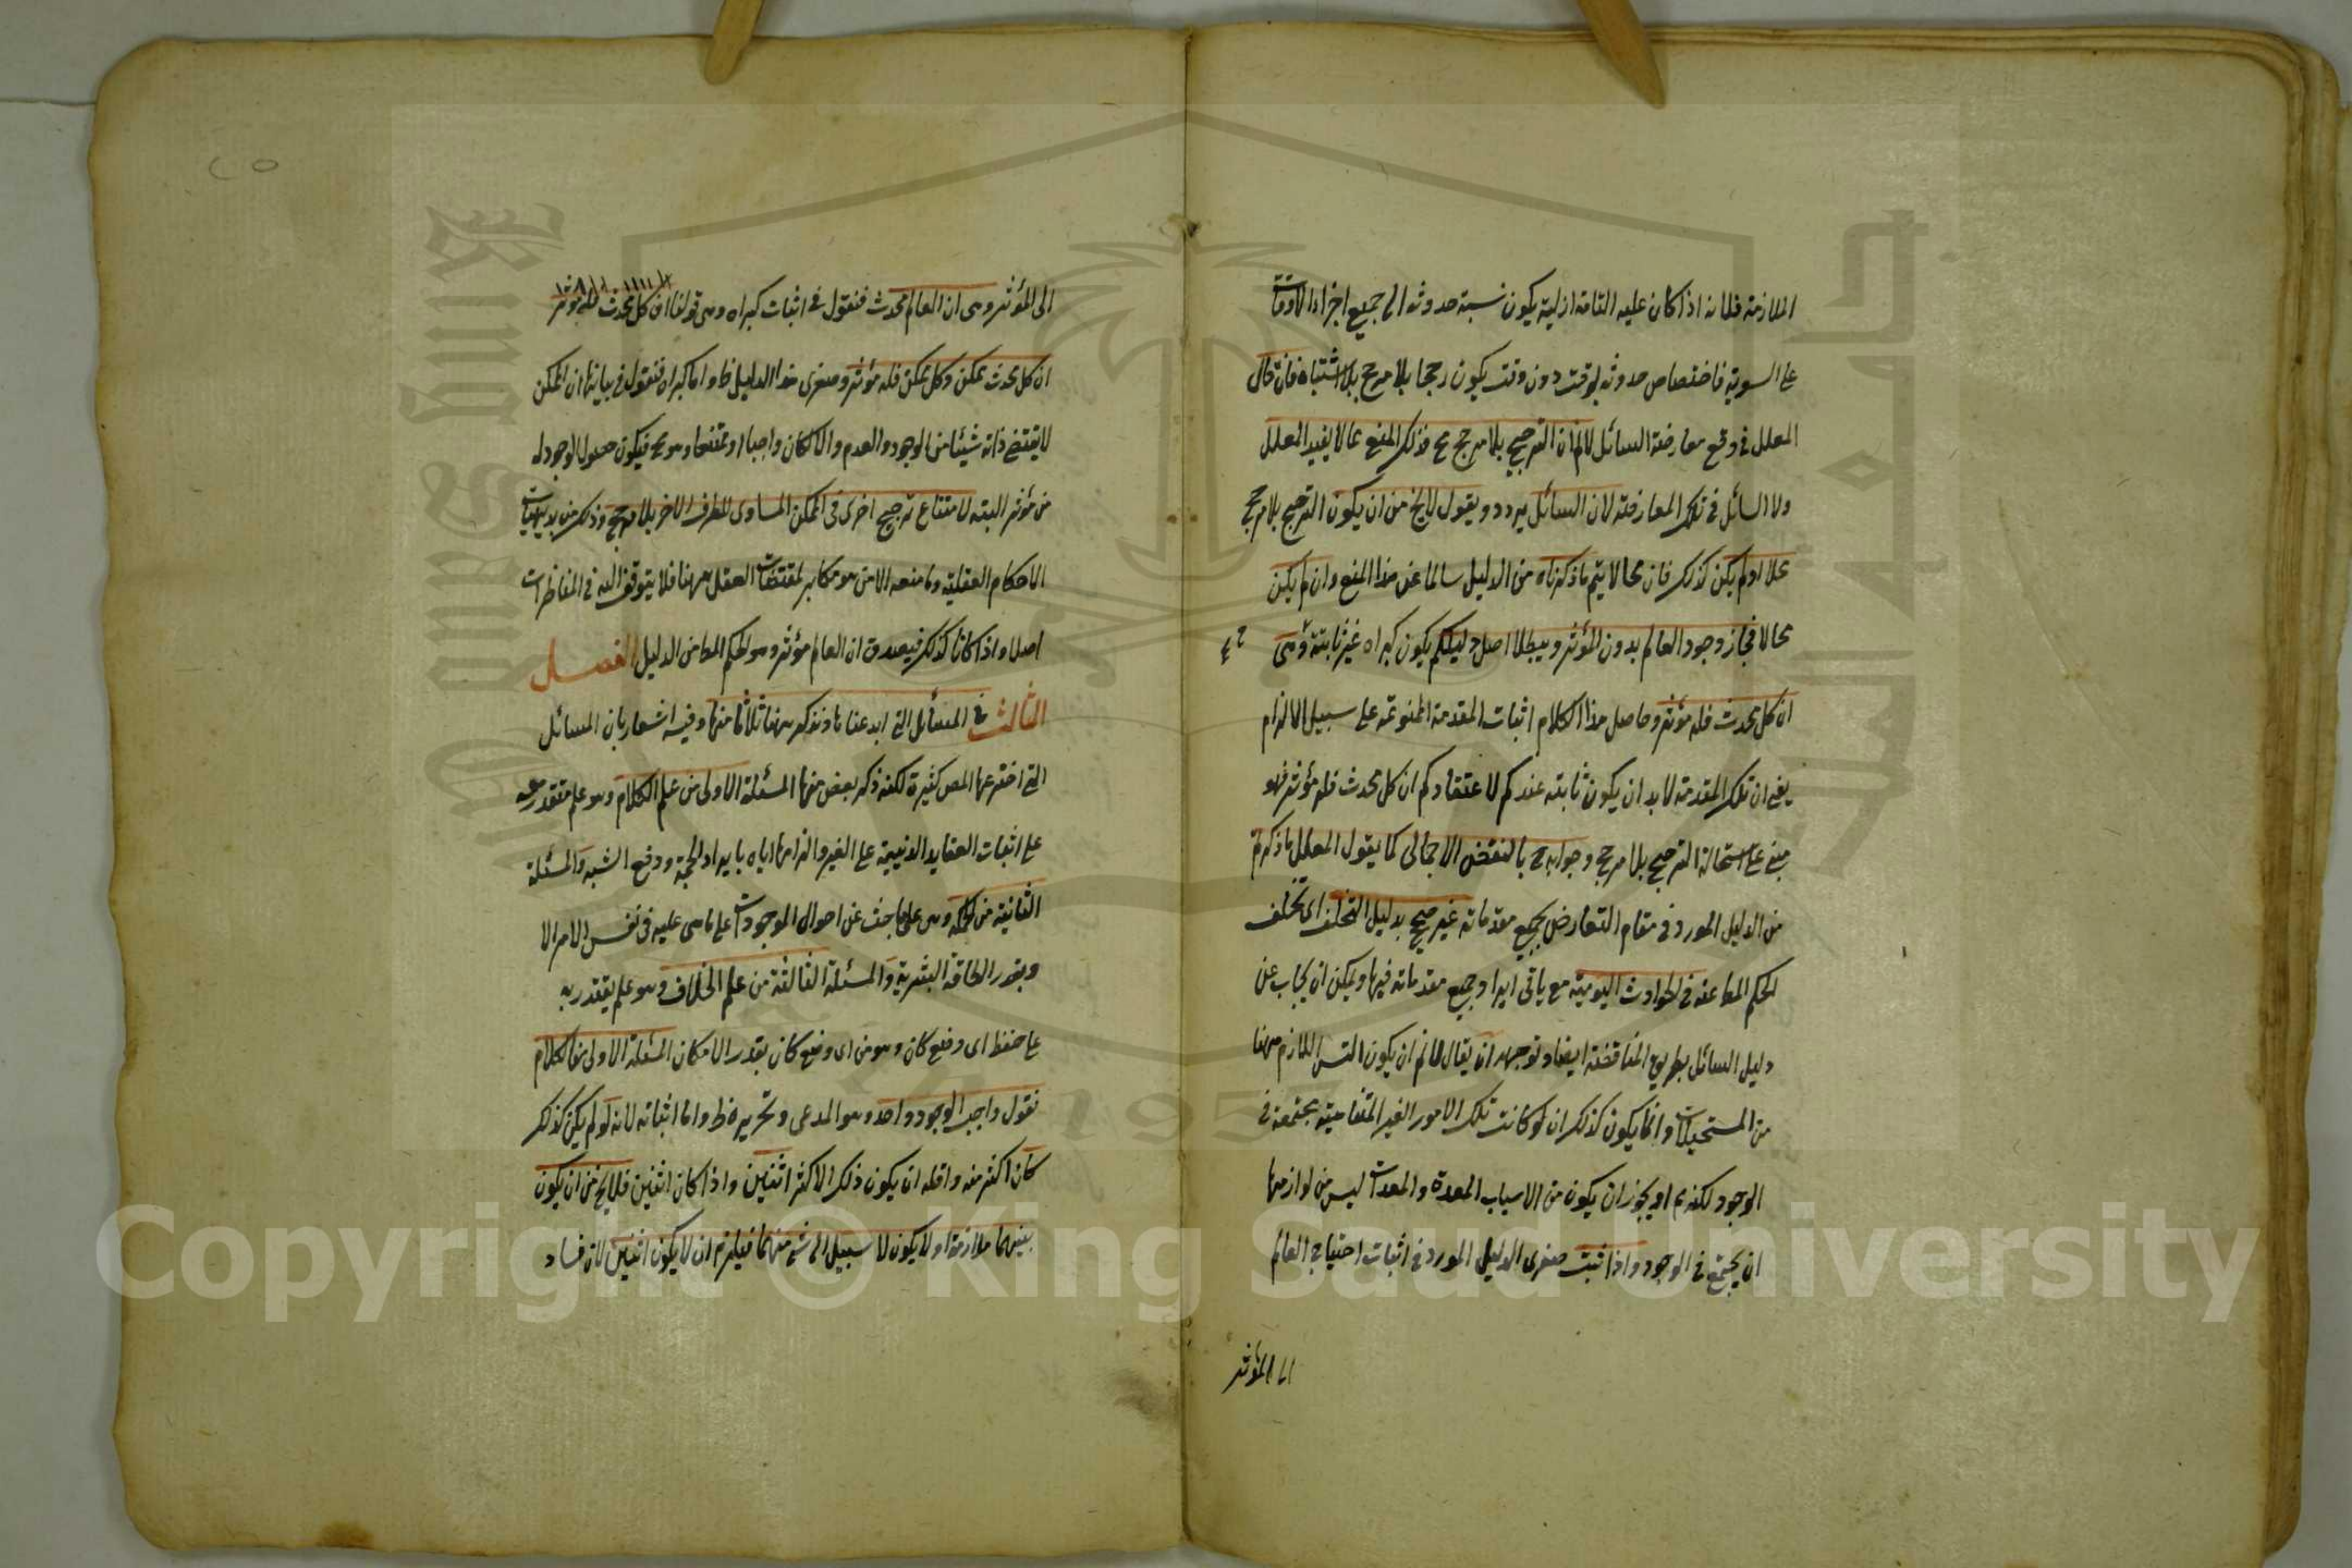 الملازمة فلانه اذا كان عليه التامة ازلية يكون نسبة حدوثه الى جميع اجزاء الاوقات
على السوية فاختصاص حدوثه بوقت دون وقت يكون رجحا بلا مرجح بلا اشتباه فان قال
المعلل فى دفع معارضة السائل لانم ان الترجيح بلا مرجح مح فذلك المنع مما لا يفيد المعلل
ولا السائل فى تلك المعارضة لان السائل يردد ويقول لايخ من ان يكون الترجيح بلا مرجح
محالا او لم يكن كذلك فان محالا يتم ما ذكرناه من الدليل سالما عن هذا المنع وان لم يكن
محالا فجاز وجود العالم بدون المؤثر ويبطل اصل دليلكم يكون كبراه غير ثابتة وهى
ان كل محدث فله مؤثر وحاصل هذا الكلام اثبات المقدمة الممنوعة على سبيل الالزام
يعنى ان تلك المقدمة لابد ان يكون ثابتة عندكم لاعتقادكم ان كل محدث فله مؤثر فهو
مبنى على استحالة الترجيح بلا مرجح وجوابه مح بالنقض الاجمالى كما يقول المعلل ما ذكرتم
من الدليل المورد فى مقام التعارض بجميع مقدماته غير صحيح بدليل التخلف اى تخلف
الحكم المط عنه فى الحوادث اليومية مع باقى ايراد جميع مقدماته فيها ويمكن ان يجاب عن
دليل السائل بطريق المناقضة ايضا وتوجيهه ان يقال لانم ان يكون التس اللازم ههنا
من المستحيلات وانما يكون كذلك ان لو كانت تلك الامور الغير المتناهية مجتمعة فى
الوجود لكنه مم او يجوز ان يكون من الاسباب المعدة والمعدات ليس من لوازمها
ان يجتمع فى الوجود واذا ثبت صغرى الدليل المورد فى اثبات احتياج العالم
الى المؤثر
الى المؤثر وهى ان العالم محدث فنقول فى اثبات كبراه وهى قولنا ان كل محدث فله مؤثر
ان كل محدث ممكن وكل ممكن فله مؤثر وصغرى هذا الدليل ظ واما كبراه فنقول فى بيانها ان الممكن
لا يقتضى ذاته شيئا من الوجود والعدم والا لكان واجبا او ممتنعا وهو مح فيكون حصول الوجود له
من مؤثر البتة لامتناع ترجيح احرى فى الممكن المساوى للطرف الاخر بلا مرجح وذلك من بديهيات
الاحكام العقلية وما منعه الا من هو مكابر لمقتضات العقل ههنا فلا يتوقف اليه فى المناظرات
اصلا واذا كانا كذلك فيصدق ان العالم مؤثر وهو الحكم المط من الدليل الفصل
الثالث فى المسائل التى ابدعناها ونذكر ههنا ثلاثا منها وفيه اشعار بان المسائل
التى اخترعها المص كثيرة لكنه ذكر بعض منها المسئلة الاولى من علم الكلام وهو علم يقتدر معه
على اثبات العقايد الدنيية على الغير والزامها اياه بايراد الحجة ودفع الشبه والمسئلة
الثانية من الحكمة وهى علم باحث عن احوال الموجودات على ما هى عليه فى نفس الامر الا
وبقدر الطاقة البشرية والمسئلة الثالثة من علم الخلاف وهو علم يقتدر به
على حفظ اى وضع كان وهدم اى وضع كان بقدر الامكان المسئلة الاولى من الكلام
نقول واجب الوجود واحد وهو المدعى وتحريره ظ واما اثباته لانه لو لم يكن كذلك
كان اكثر منه واقله ان يكون ذلك الاكثر اثنين واذا كان اثنين فلايخ من ان يكون
بينهما ملازمة او لا يكون لا سبيل الى شئ منهما فيلزم ان لا يكون اثنين لان فساد
Copyright © King Saud University
1957